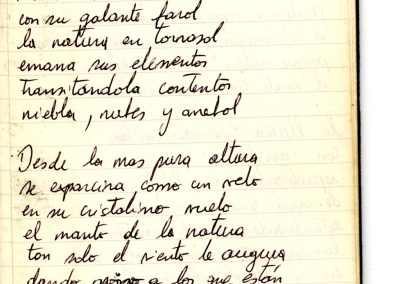 con su galante farol
la natura en tornasol
emana sus elementos
transitandola contentos
niebla, nubes y arrebol
Desde la mas pura altura
se esparcina como un velo
en su cristalino vuelo
el manto de la natura
tan solo el viento le augura
dando a los que están